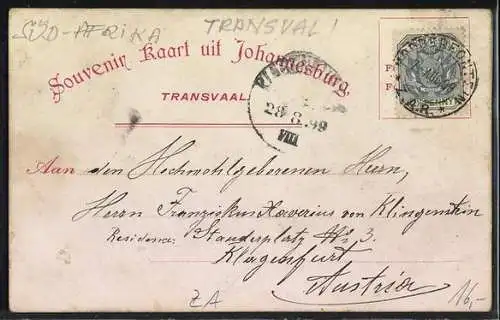 SÜD-AFRIKA
TRANSVAL!
Souvenir Kaart uit Johannesburg,
TRANSVAAL
28.8.99
VIII
Z.A.R.
Aan den Hochwohlgeborenen Herrn,
Herrn Franziskus Xaverius von Klingenstein
Residence: Stauderplatz No 3.
Klagenfurt
Austria
ZA
16,-